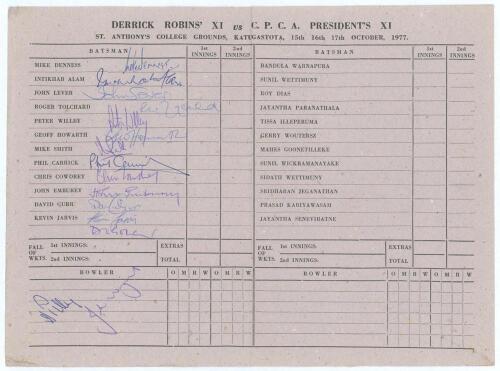 DERRICK ROBINS' XI vs C. P. C. A. PRESIDENT'S XI
ST. ANTHONY'S COLLEGE GROUNDS, KATUGASTOTA, 15th 16th 17th OCTOBER, 1977.
BATSMAN 1st INNINGS 2nd INNINGS BATSMAN 1st INNINGS 2nd INNINGS
MIKE DENNESS BANDULA WARNAPURA
INTIKHAB ALAM SUNIL WETTIMUNY
JOHN LEVER ROY DIAS
ROGER TOLCHARD JAYANTHA PARANATHALA
PETER WILLEY TISSA ILLEPERUMA
GEOFF HOWARTH GERRY WOUTERSZ
MIKE SMITH MAHES GOONETILLEKE
PHIL CARRICK Phil Carrick SUNIL WICKRAMANAYAKE
CHRIS COWDREY Chris Cowdrey SIDATH WETTIMUNY
JOHN EMBUREY John Emburey SRIDHARAN JEGANATHAN
DAVID GURR PRASAD KARIYAWASAM
KEVIN JARVIS JAYANTHA SENEVIRATNE
FALL OF WKTS. 1st INNINGS: 2nd INNINGS: EXTRAS TOTAL FALL OF WKTS. 1st INNINGS: 2nd INNINGS: EXTRAS TOTAL
BOWLER O M R W O M R W BOWLER O M R W O M R W